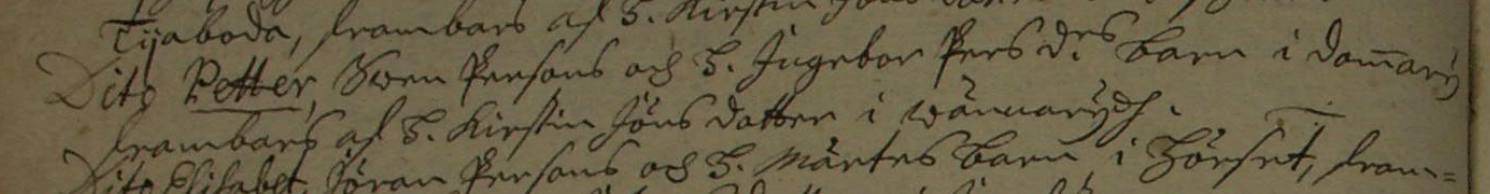 Tÿaboda, frambars af H. Kirstin Jöns
Dito Petter, Swen Persons och H. Ingebor Pers d:rs barn i Dom̄arÿ
frambars af H. Kirstin Jöns dotter i Wännarÿdh.
Dito Elisabet, Jöran Persons och H. Märtes barn i Hörset, fram=